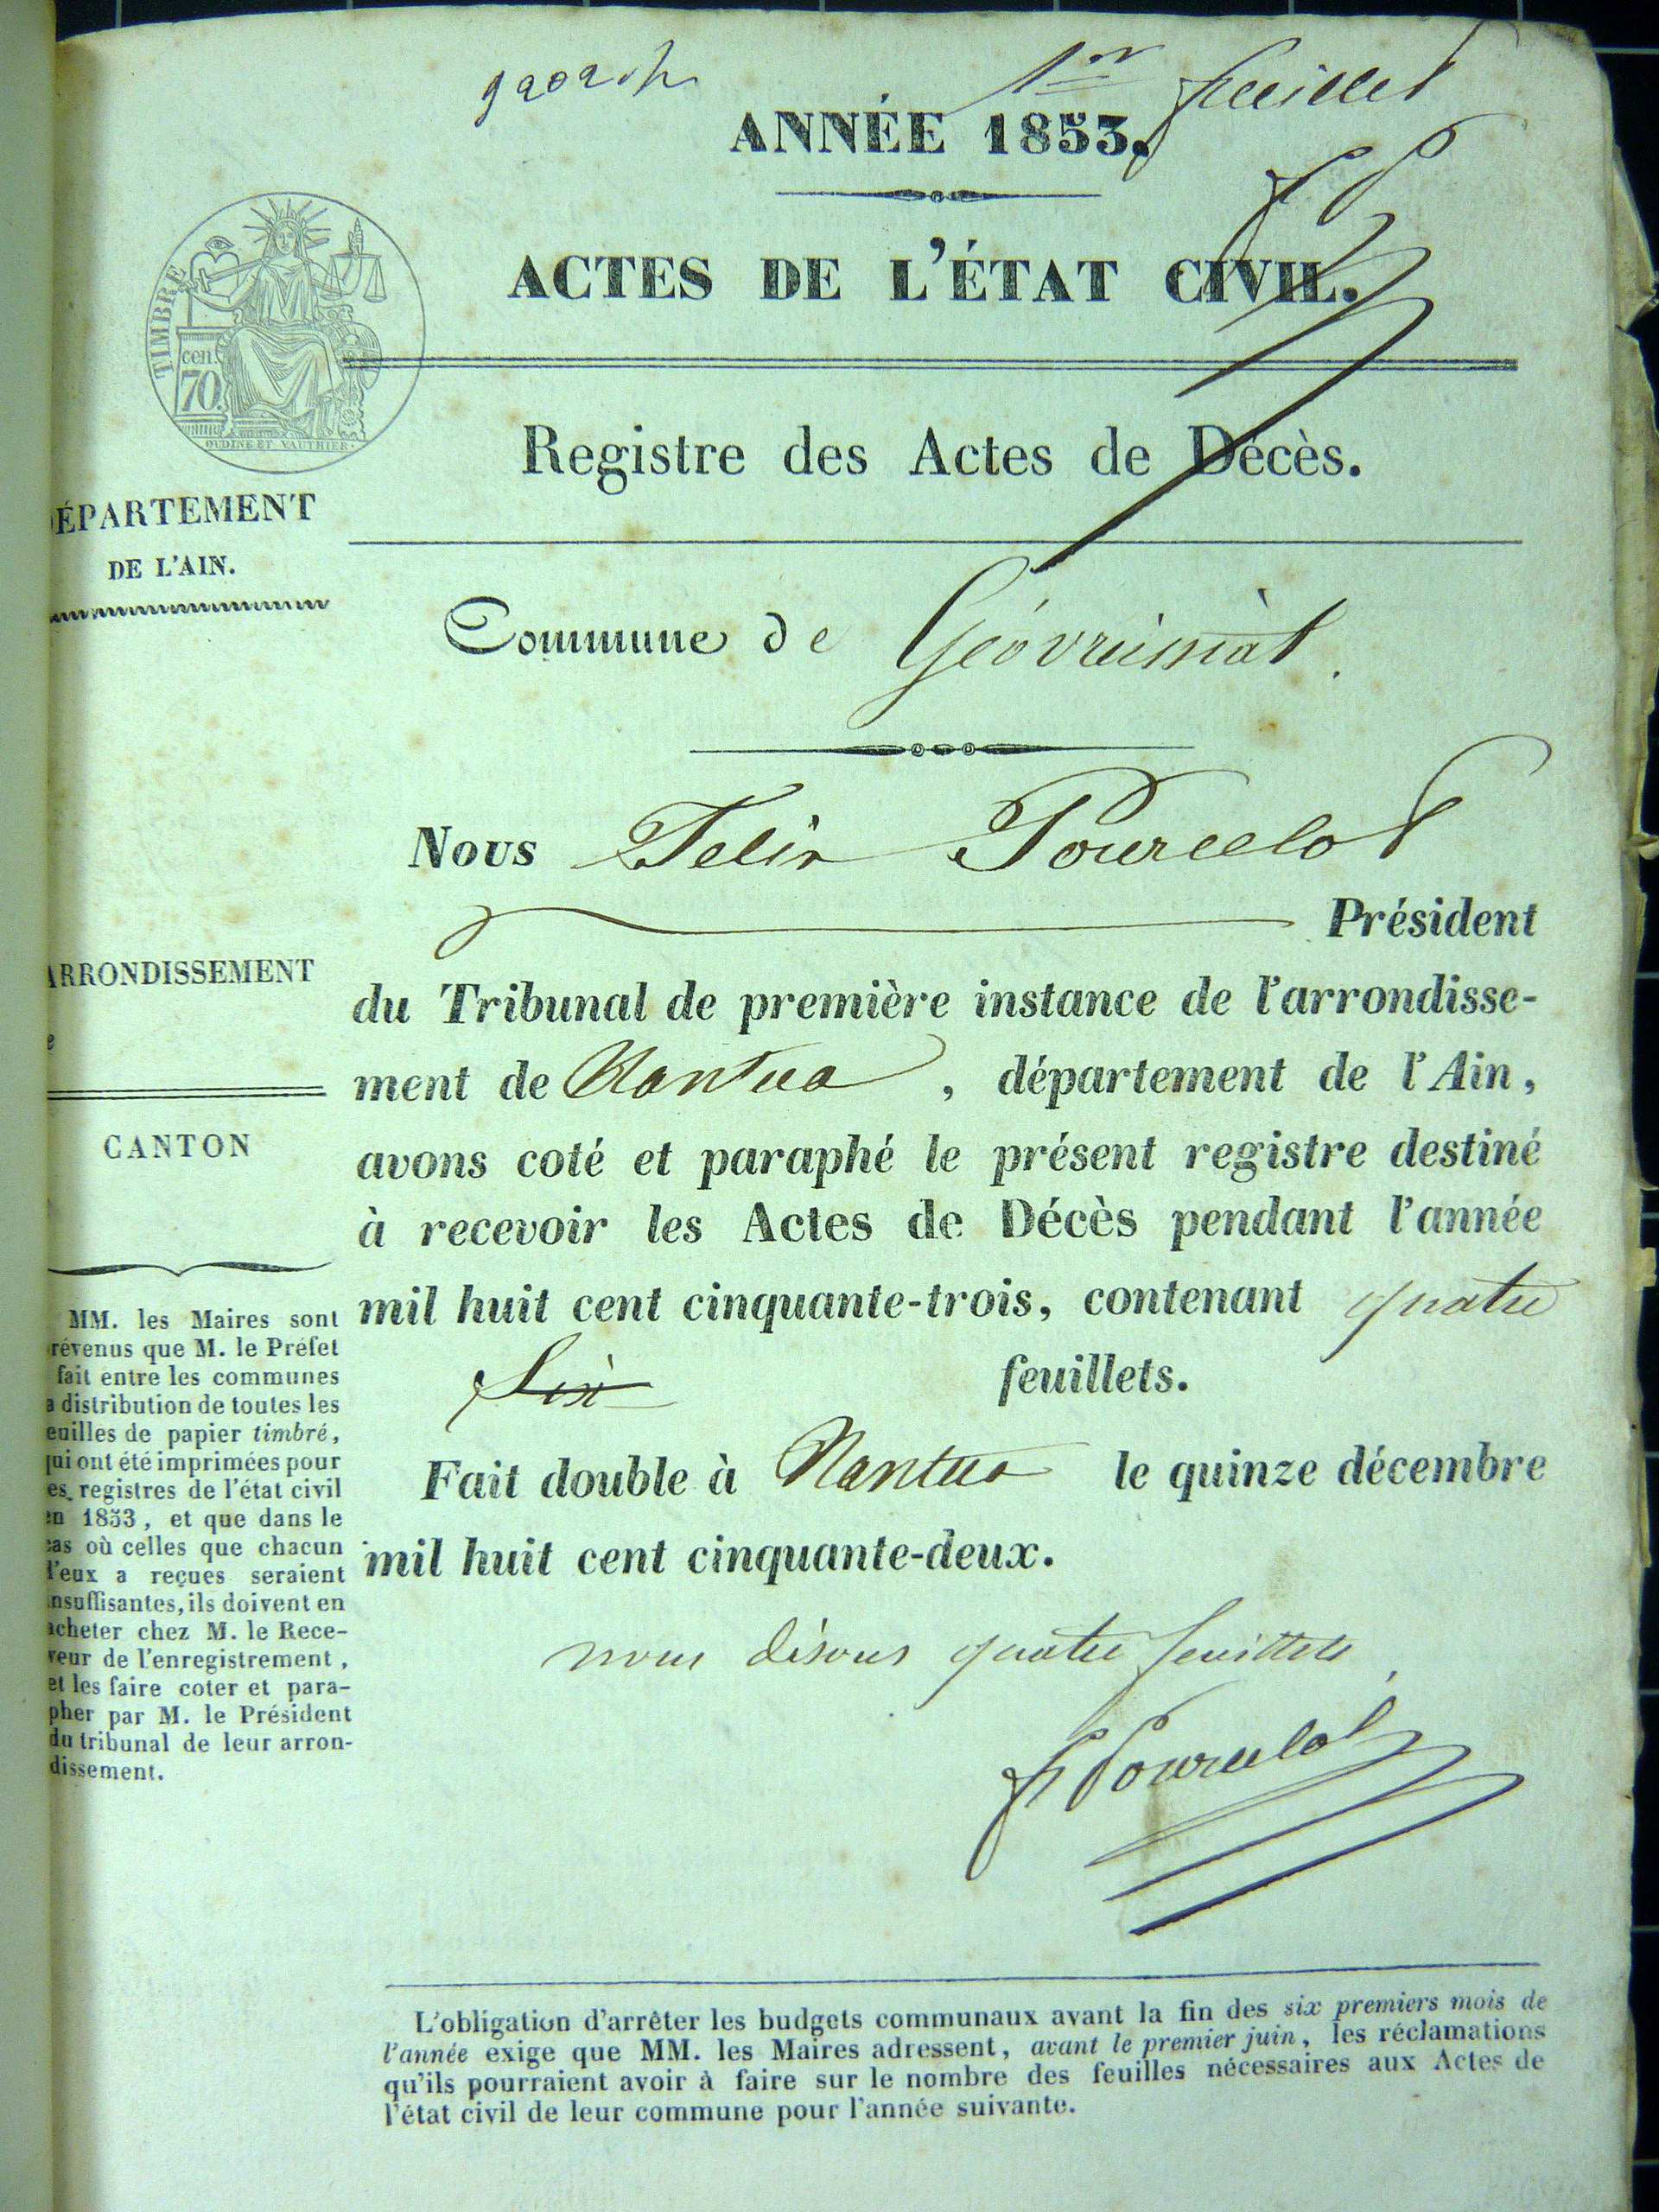 1er feuillet
ANNÉE 1853.
ACTES DE L'ÉTAT CIVIL.
TIMBRE
cen
70.
OUDINÉ ET VAUTHIER.
Registre des Actes de Décès.
ÉPARTEMENT
DE L'AIN.
Commune de Géovreissiat.
Nous Felix Pourcelot
Président
ARRONDISSEMENT
e
du Tribunal de première instance de l'arrondisse-
ment de Nantua, département de l'Ain,
CANTON
avons coté et paraphé le présent registre destiné
à recevoir les Actes de Décès pendant l'année
mil huit cent cinquante-trois, contenant quatre
Six feuillets.
Fait double à Nantua le quinze décembre
mil huit cent cinquante-deux.
nous disons quatre feuillets,
F Pourcelot
MM. les Maires sont
révenus que M. le Préfet
fait entre les communes
a distribution de toutes les
euilles de papier timbré,
qui ont été imprimées pour
es registres de l'état civil
en 1853, et que dans le
cas où celles que chacun
d'eux a reçues seraient
insuffisantes, ils doivent en
acheter chez M. le Rece-
veur de l'enregistrement,
et les faire coter et para-
pher par M. le Président
du tribunal de leur arron-
dissement.
L'obligation d'arrêter les budgets communaux avant la fin des six premiers mois de
l'année exige que MM. les Maires adressent, avant le premier juin, les réclamations
qu'ils pourraient avoir à faire sur le nombre des feuilles nécessaires aux Actes de
l'état civil de leur commune pour l'année suivante.